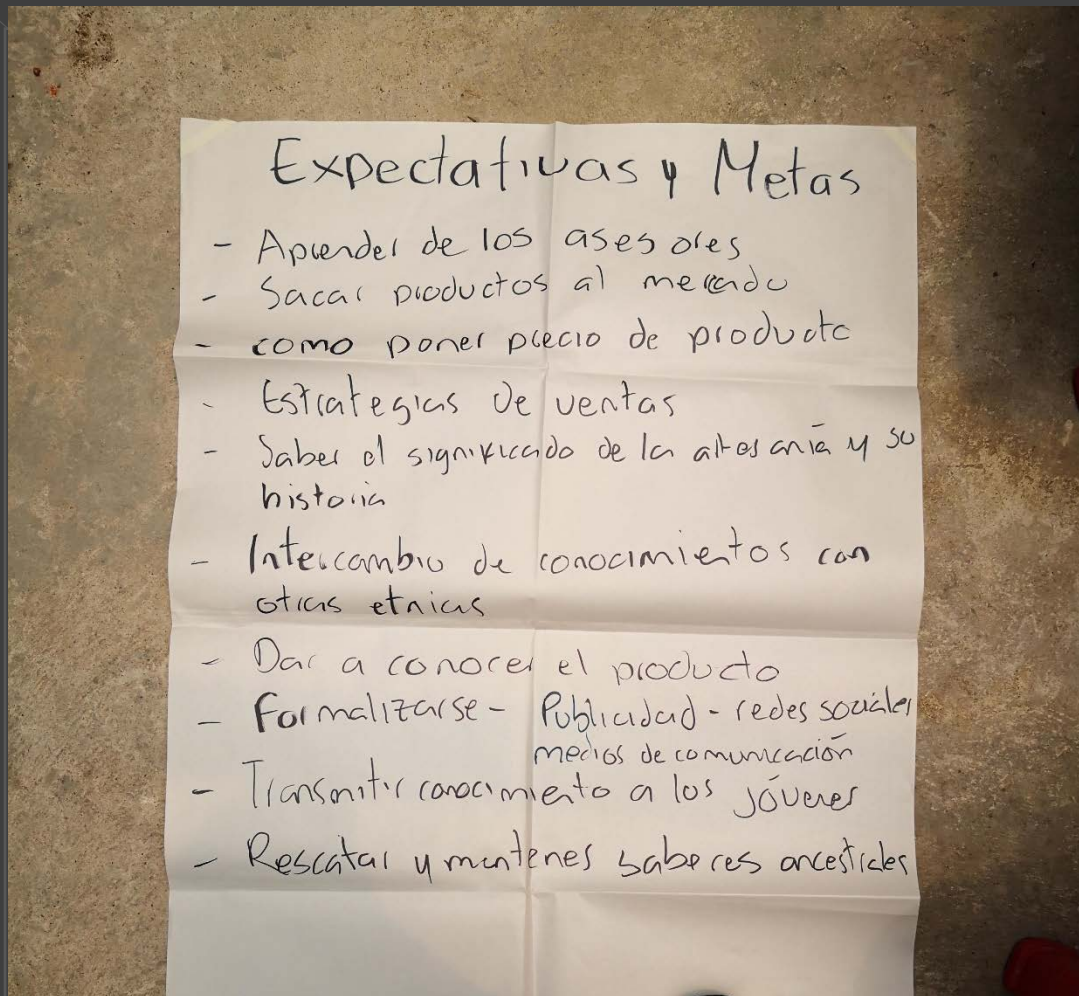 Expectativas y Metas
- Aprender de los asesores
- Sacar productos al mercado
- como poner precio de producto
- Estrategias de ventas
- Saber el significado de la artesanía y su
historia
- Intercambio de conocimientos con
otras etnias
- Dar a conocer el producto
- Formalizarse - Publicidad - redes sociales
medios de comunicación
- Transmitir conocimiento a los jóvenes
- Rescatar y mantenes saberes ancestrales